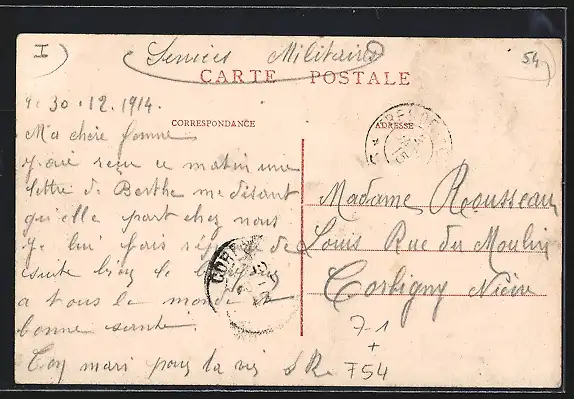 I
Services Militaires
54
CARTE POSTALE
le 30.12.1914.
CORRESPONDANCE
ADRESSE
Ma chère femme
J'ai reçu ce matin une
lettre de Berthe me disant
qu'elle part chez nous
Je lui fais réponse de
suite bien le
a tous le monde
bonne santé
Ton mari pour la vie
Madame Rousseau
Louis Rue du Moulin
Corbigny Nièvre
7-1
+
754